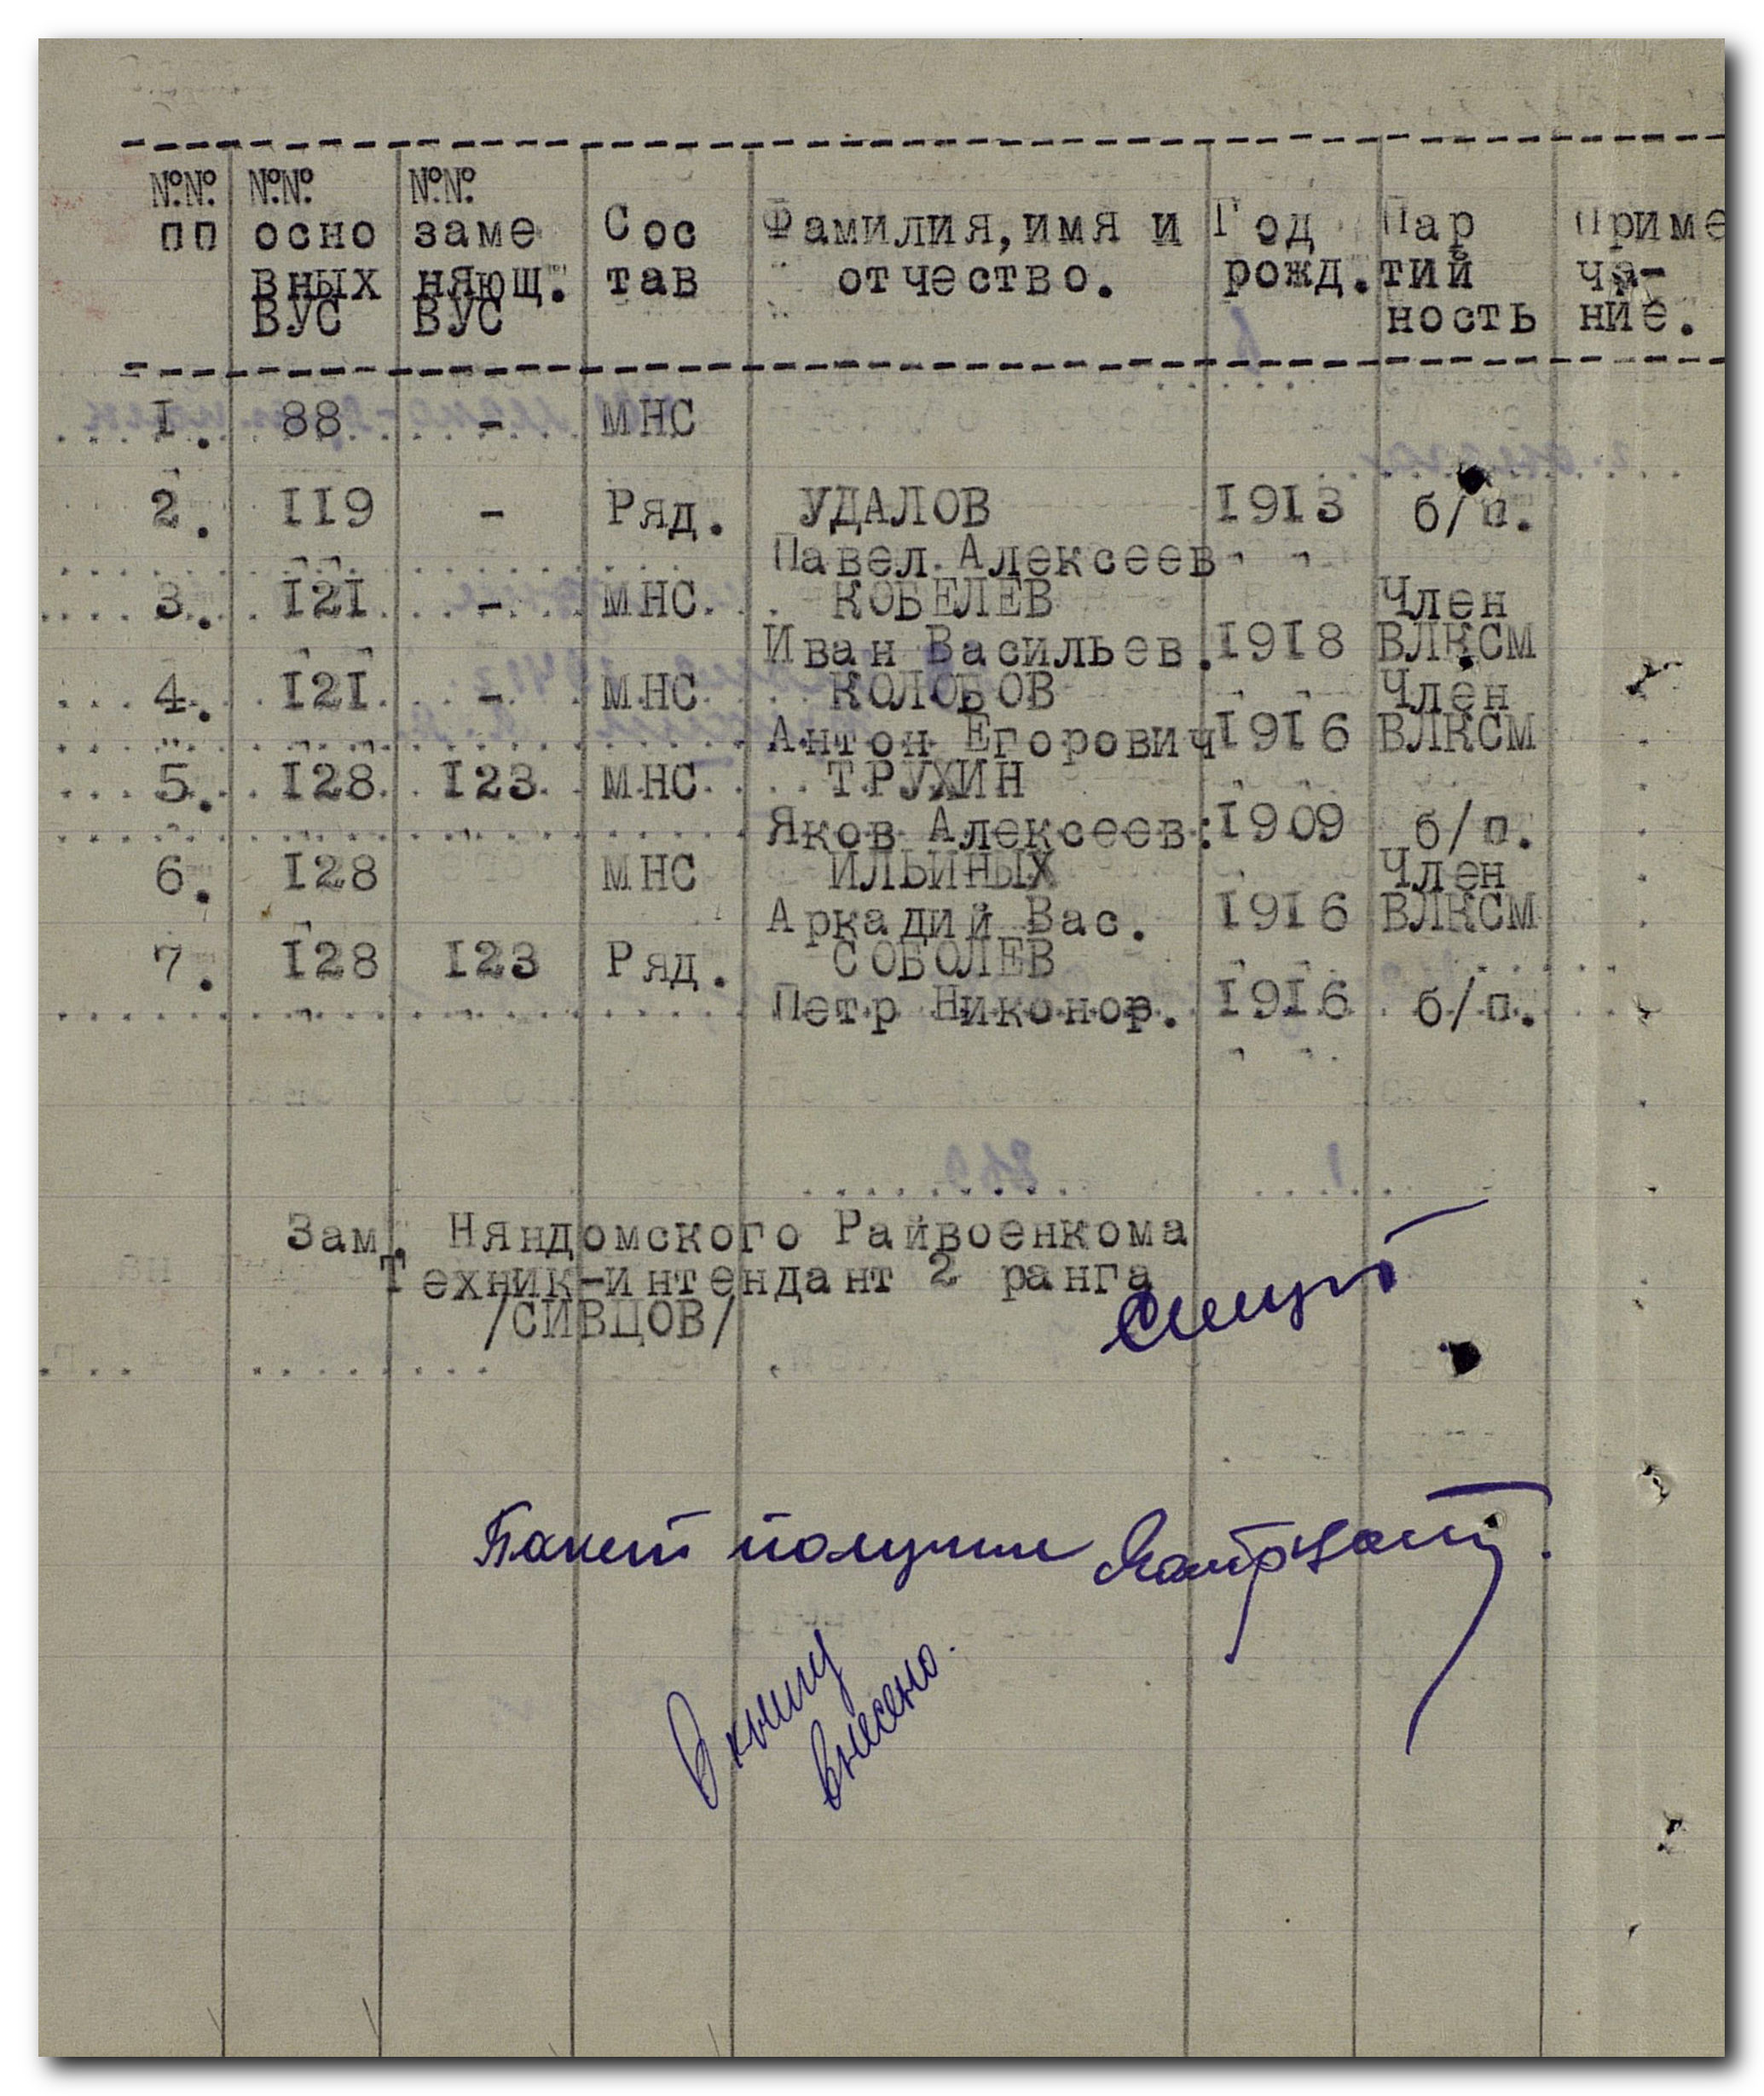 №№ №№ №№
пп осно заме Сос Фамилия, имя и Год Пар Приме
вных няющ. тав отчество. рожд. тий ча-
ВУС ВУС ность ние.
I. 88 - МНС
2. II9 - Ряд. УДАЛОВ I9I3 б/п.
Павел Алексеев
3. I2I - МНС КОБЕЛЕВ Член
Иван Васильев. I9I8 ВЛКСМ
4. I2I - МНС КОЛОБОВ Член
Антон Егорович I9I6 ВЛКСМ
5. I28 I23 МНС ТРУХИН
Яков Алексеев. I909 б/п.
6. I28 МНС ИЛЬИНЫХ Член
Аркадий Вас. I9I6 ВЛКСМ
7. I28 I23 Ряд. СОБОЛЕВ
Петр Никонор. I9I6 б/п.
Зам. Няндомского Райвоенкома
Техник-интендант 2 ранга
/СИВЦОВ/
Пакет получил
В книгу
внесено.